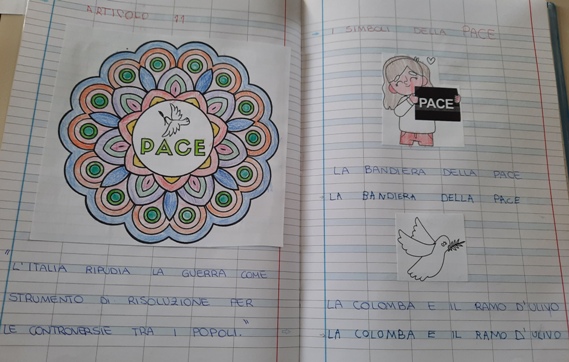 ARTICOLO 11
PACE
"L'ITALIA RIPUDIA LA GUERRA COME
STRUMENTO DI RISOLUZIONE PER
LE CONTROVERSIE TRA I POPOLI."
I SIMBOLI DELLA PACE
PACE
LA BANDIERA DELLA PACE
LA BANDIERA DELLA PACE
LA COLOMBA E IL RAMO D'ULIVO
LA COLOMBA E IL RAMO D'ULIVO